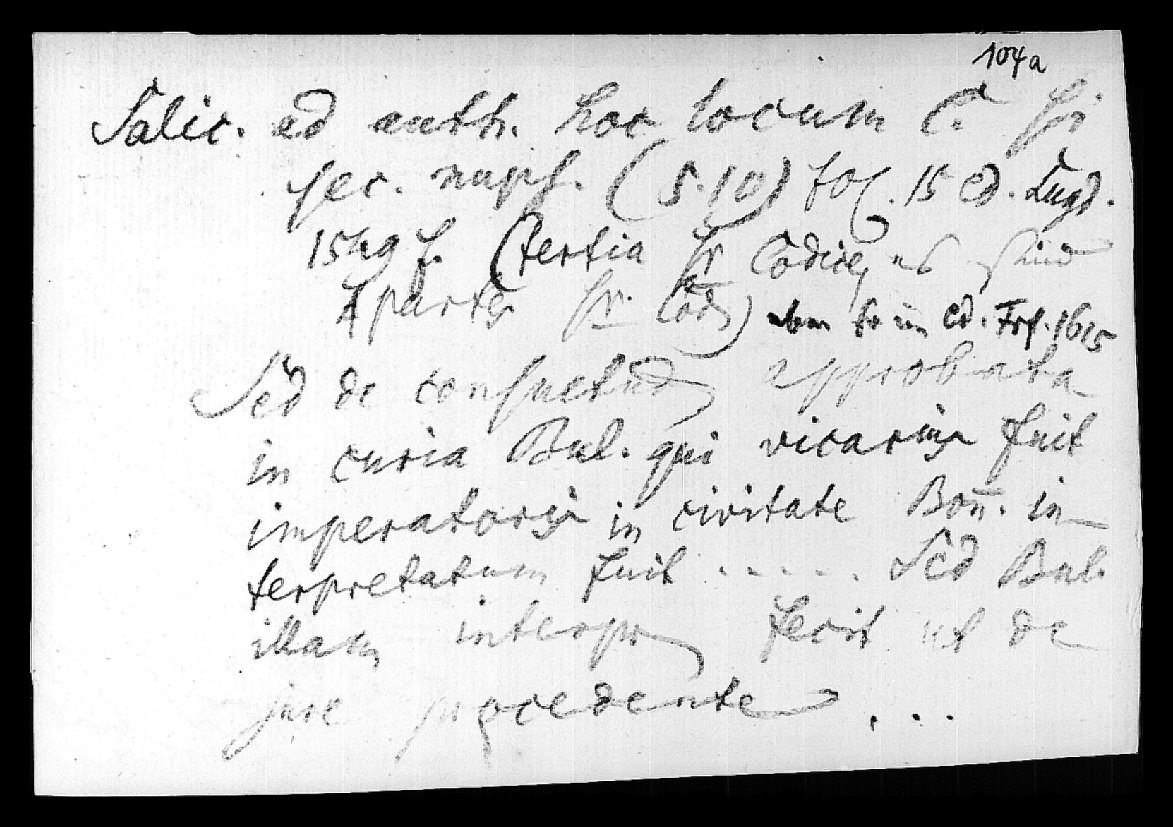 104a
Salic. ad auth. hoc locum C. si
sec. nups. (5.10) fol. 15 ed. Lugd.
1549 f. (tertia sr Codice, es sind
4 partes sr. Cod) eben so in ed. Frf. 1615
Sed de consuetud approbata
in curia Bul. qui vicarius fuit
imperatoris in civitate Bon. in
terpretatum fuit ..... Sed Bul.
illam interpr fecit ut de
jure procedente ...